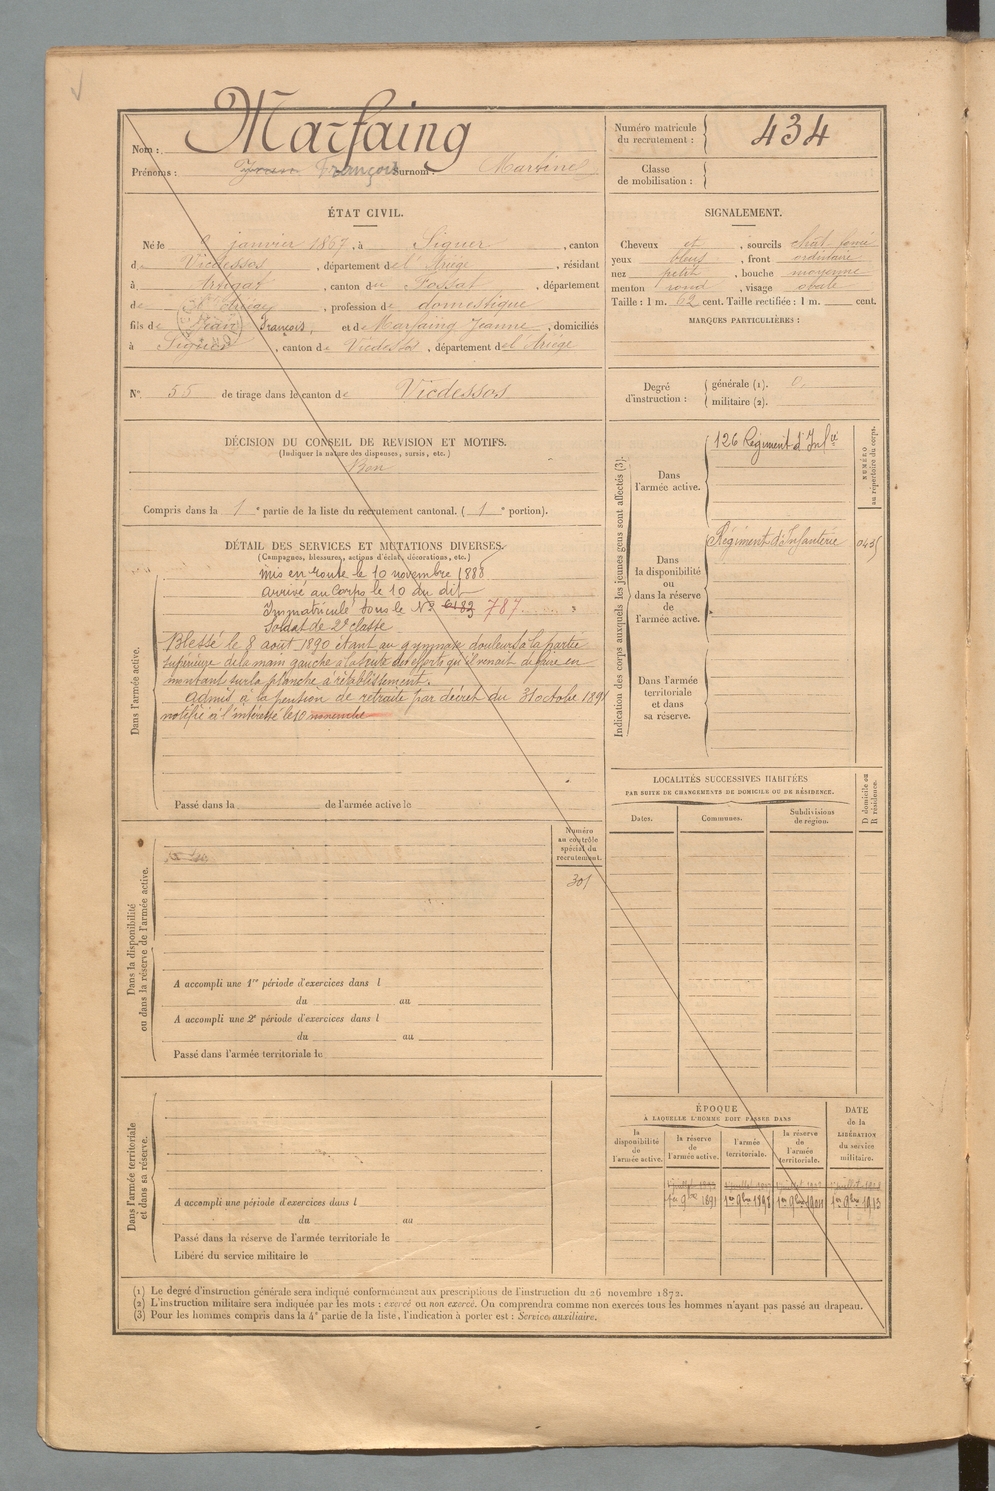 Nom : Marfaing
Prénoms : Jean François Surnom : Martinel
Numéro matricule du recrutement : 434
Classe de mobilisation :
ÉTAT CIVIL.
Né le janvier 1867, à Siguer, canton
de Vicdessos, département de l'Ariège, résidant
à Artigat, canton du Fossat, département
de l'Ariège, profession de domestique
fils de Jean François, et de Marfaing Jeanne, domiciliés
à Siguer, canton de Vicdessos, département de l'Ariège
N° 55 de tirage dans le canton de Vicdessos
SIGNALEMENT.
Cheveux et, sourcils chât foncé
yeux bleus, front ordinaire
nez petit, bouche moyenne
menton rond, visage ovale
Taille : 1 m. 62 cent. Taille rectifiée : 1 m. cent.
MARQUES PARTICULIÈRES :
Degré d'instruction : générale (1). 0.
militaire (2).
DÉCISION DU CONSEIL DE REVISION ET MOTIFS.
(Indiquer la nature des dispenses, sursis, etc.)
Bon
Compris dans la 1e partie de la liste du recrutement cantonal. (1e portion).
DÉTAIL DES SERVICES ET MUTATIONS DIVERSES.
(Campagnes, blessures, actions d'éclat, décorations, etc.)
Dans l'armée active.
Mis en route le 10 novembre 1888
arrivé au Corps le 10 du dit
Immatriculé sous le N° 6183 787
Soldat de 2e classe
Blessé le 8 août 1890 étant au gymnase douleurs à la partie
supérieure de la main gauche à la suite des efforts qu'il venait de faire en
montant sur la planche à rétablissement.
Admis à la pension de retraite par décret du 31 octobre 1891
notifié à l'intéressé le 10 novembre
Passé dans la de l'armée active le
Indication des corps auxquels les jeunes gens sont affectés (3).
NUMÉRO au répertoire du corps.
Dans l'armée active.
126 Régiment d'Inf.ie
Dans la disponibilité ou dans la réserve de l'armée active.
Régiment d'Infanterie
Dans l'armée territoriale et dans sa réserve.
LOCALITÉS SUCCESSIVES HABITÉES
PAR SUITE DE CHANGEMENTS DE DOMICILE OU DE RÉSIDENCE.
D domicile ou R résidence.
Dates.
Communes.
Subdivisions de région.
Dans la disponibilité ou dans la réserve de l'armée active.
Numéro au contrôle spécial du recrutement.
301
A accompli une 1re période d'exercices dans l
du au
A accompli une 2e période d'exercices dans l
du au
Passé dans l'armée territoriale le
Dans l'armée territoriale et dans sa réserve.
A accompli une période d'exercices dans l
du au
Passé dans la réserve de l'armée territoriale le
Libéré du service militaire le
ÉPOQUE
À LAQUELLE L'HOMME DOIT PASSER DANS
la disponibilité de l'armée active.
la réserve de l'armée active.
l'armée territoriale.
la réserve de l'armée territoriale.
DATE de la LIBÉRATION du service militaire.
1er 9bre 1891
1er 9bre 1898
1er 9bre 1904
1er 9bre 1913
(1) Le degré d'instruction générale sera indiqué conformément aux prescriptions de l'instruction du 26 novembre 1872.
(2) L'instruction militaire sera indiquée par les mots : exercé ou non exercé. On comprendra comme non exercés tous les hommes n'ayant pas passé au drapeau.
(3) Pour les hommes compris dans la 4e partie de la liste, l'indication à porter est : Services auxiliaire.